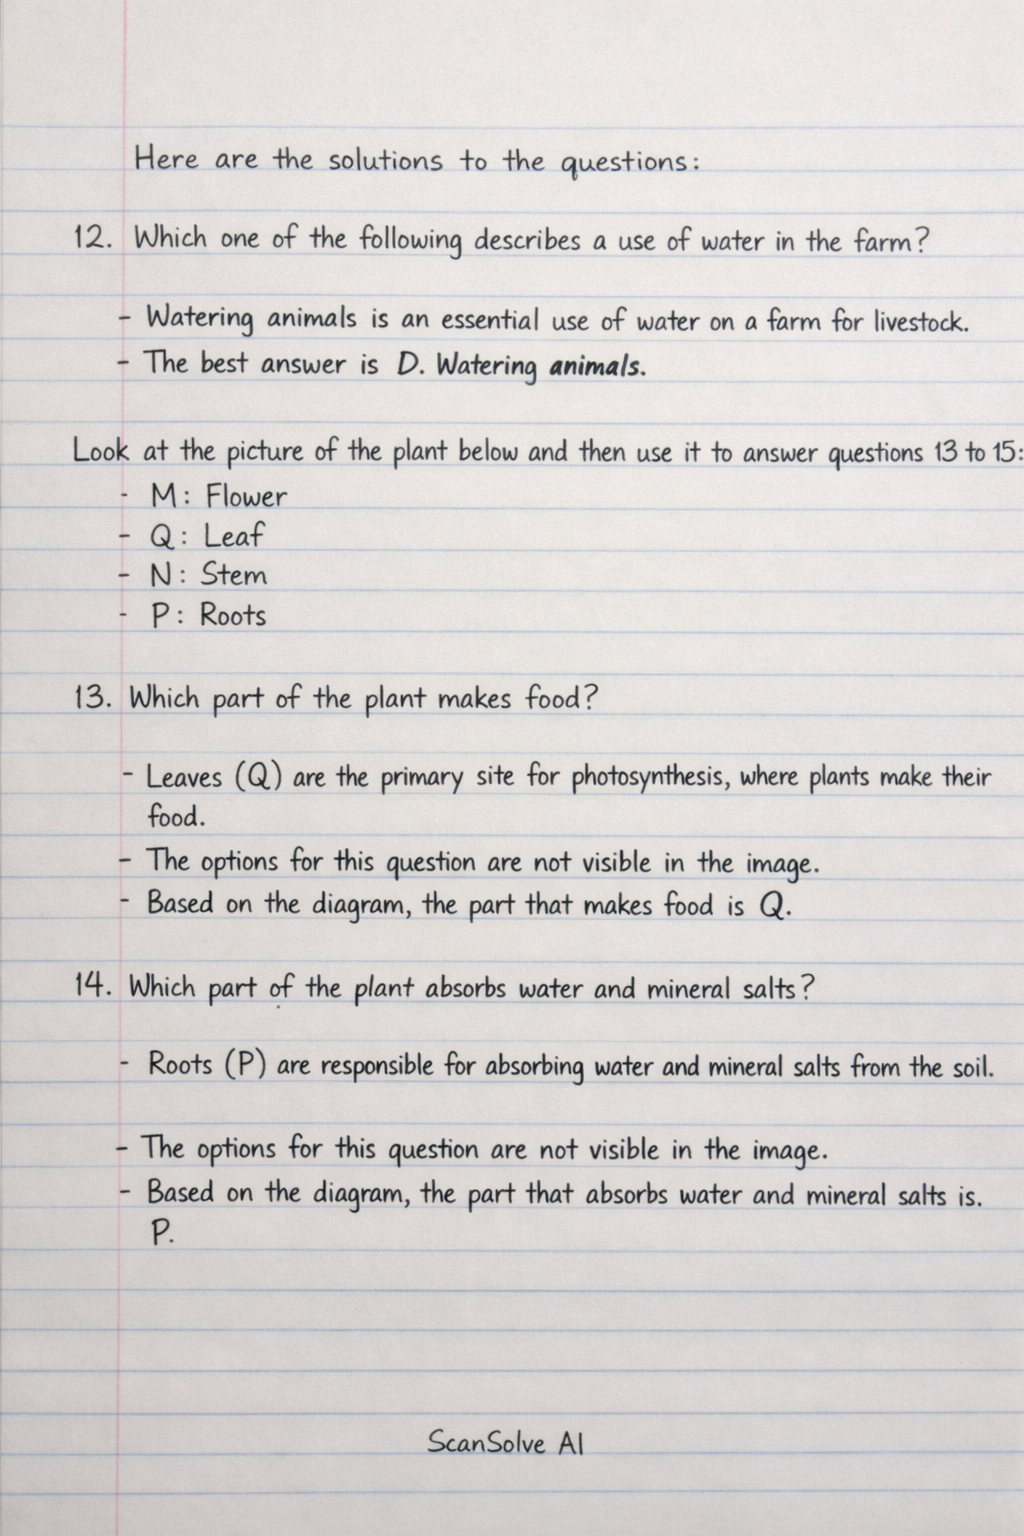 Here are the solutions to the questions:
12. Which one of the following describes a use of water in the farm?
- Watering animals is an essential use of water on a farm for livestock.
- The best answer is D. Watering animals.
Look at the picture of the plant below and then use it to answer questions 13 to 15:
- M: Flower
- Q: Leaf
- N: Stem
- P: Roots
13. Which part of the plant makes food?
- Leaves (Q) are the primary site for photosynthesis, where plants make their
food.
- The options for this question are not visible in the image.
- Based on the diagram, the part that makes food is Q.
14. Which part of the plant absorbs water and mineral salts?
- Roots (P) are responsible for absorbing water and mineral salts from the soil.
- The options for this question are not visible in the image.
- Based on the diagram, the part that absorbs water and mineral salts is.
P.
ScanSolve AI